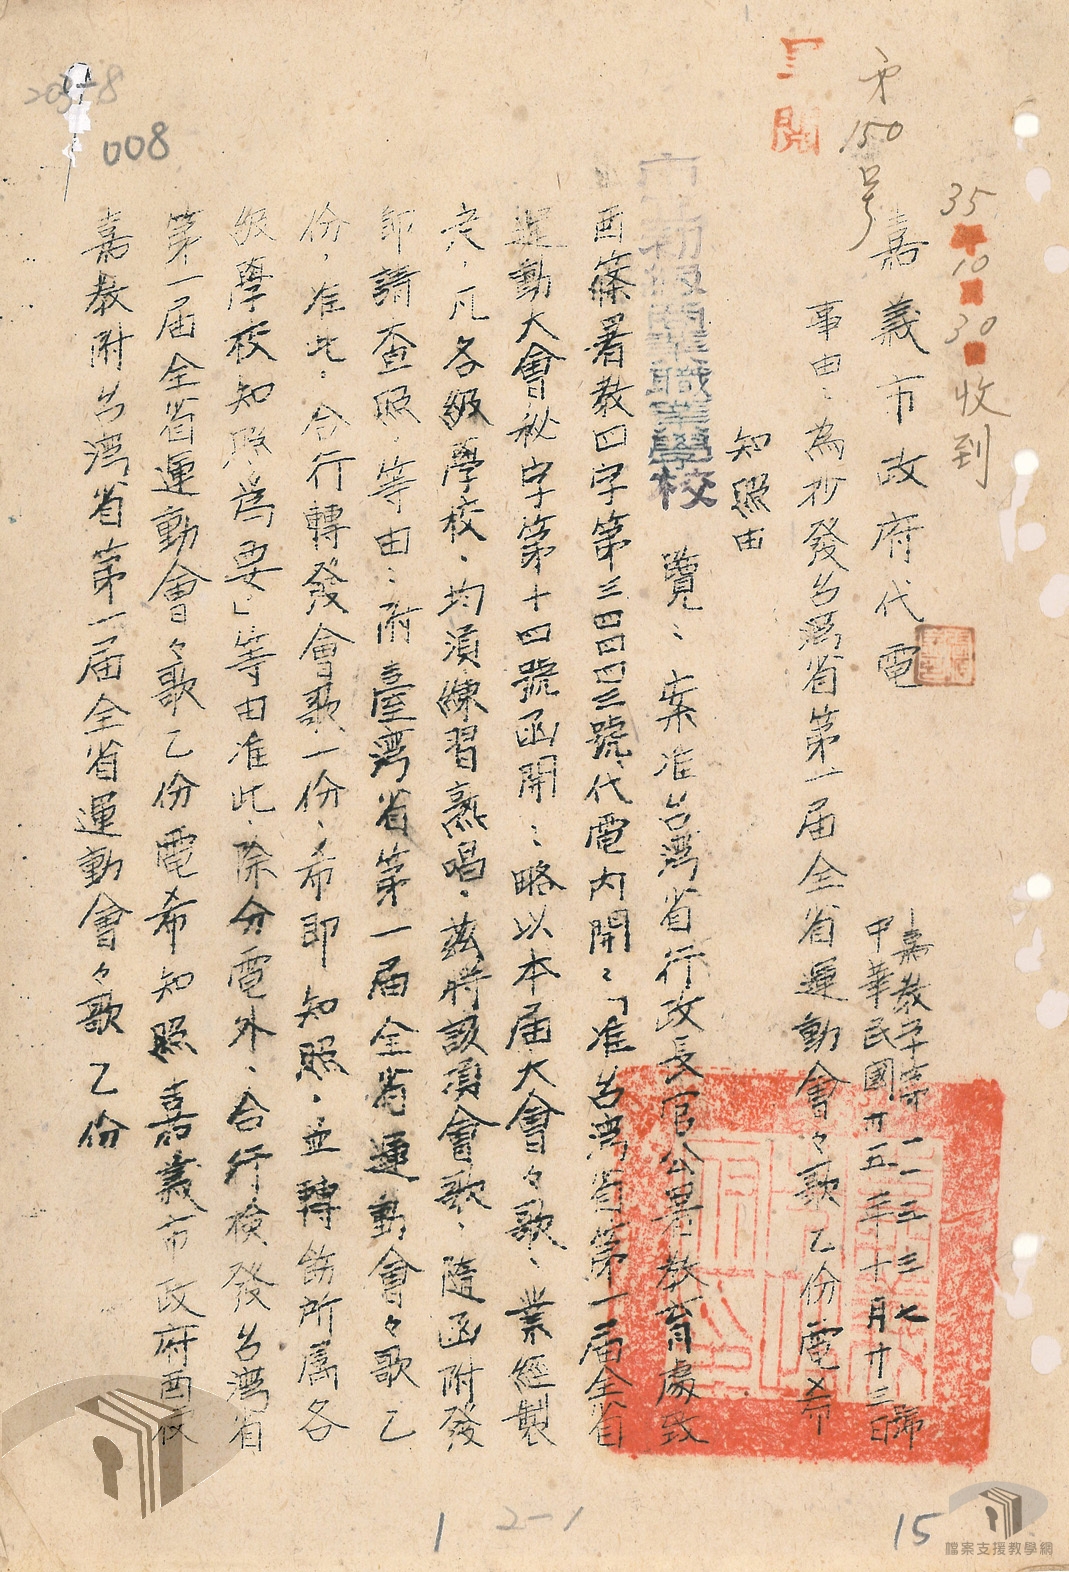 203-8
008
第150号
35年10月30日收到
嘉義市政府代電
嘉教字第一一五三七號
中華民國卅五年十月廿三日
事由：為抄發台灣省第一届全省運動會々歌乙份電希
知照由
市初級商業職業學校
覽：案准台灣省行政長官公署教育處致
酉篠署教四字第三四四四三號代電内開：「准台灣省第一届全省
運動大會秘字第十四號函開：略以本届大會々歌、業經製
定，凡各級學校、均須練習熟唱。茲將該項會歌、隨函附發
即請查照、等由：附臺灣省第一届全省運動會々歌乙
份，准此：合行轉發會歌一份、希即知照、並轉飭所属各
級學校知照為要」等由准此、除分電外、合行檢發台灣省
第一届全省運動會々歌乙份電希知照嘉義市政府酉
嘉教附台灣省第一届全省運動會々歌乙份
1
2-1
15
檔案支援教學網